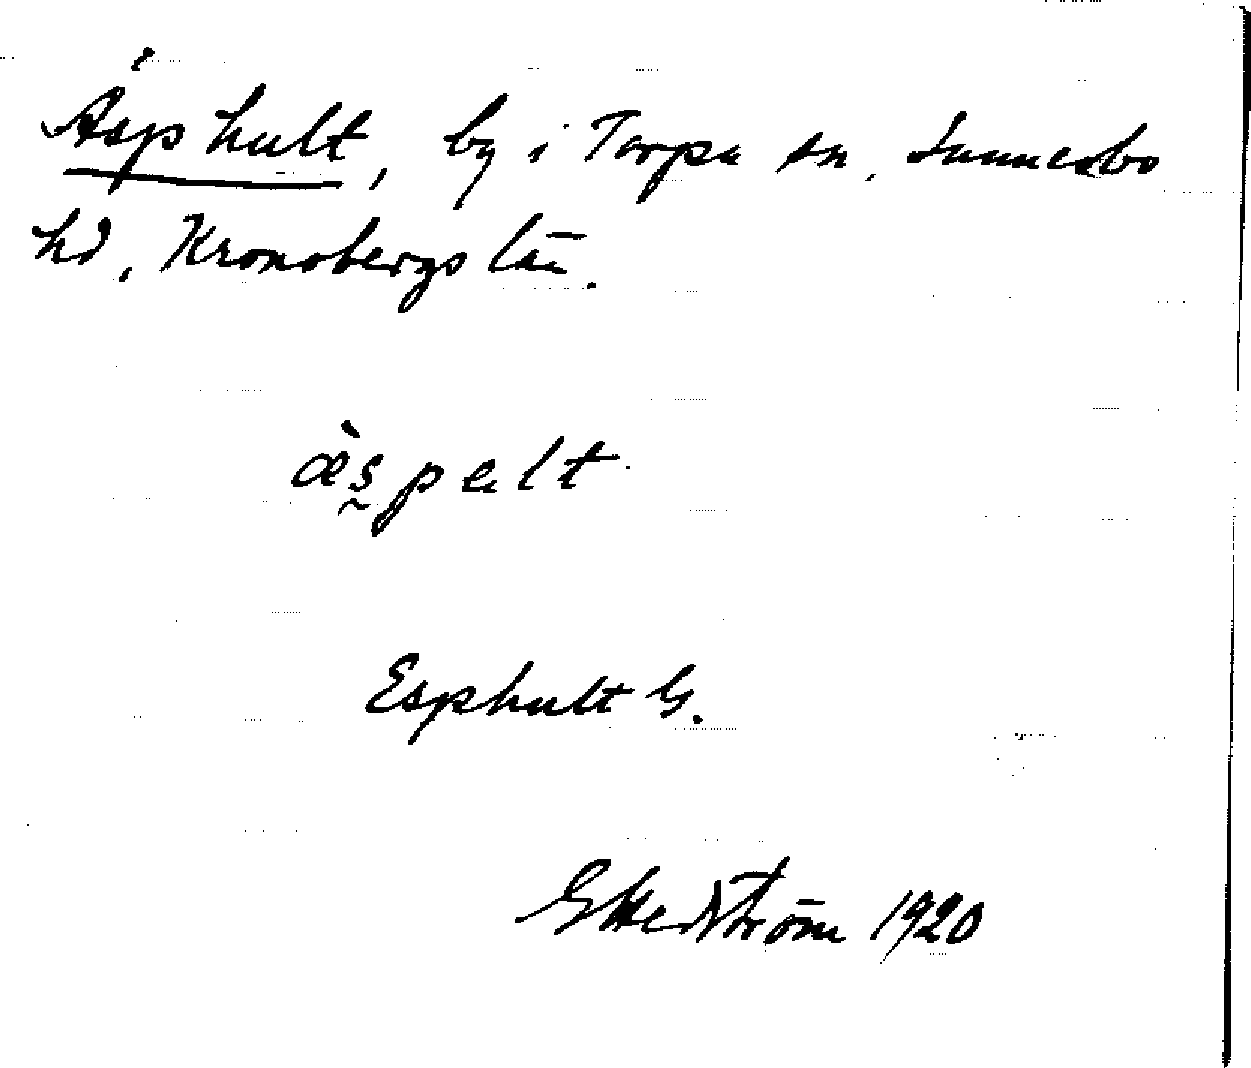 Äsphult, by i Torpa sn, Sunnerbo
hd, Kronobergs län.
æ̀s̰pelt
Esphult G.
G Hedström 1920